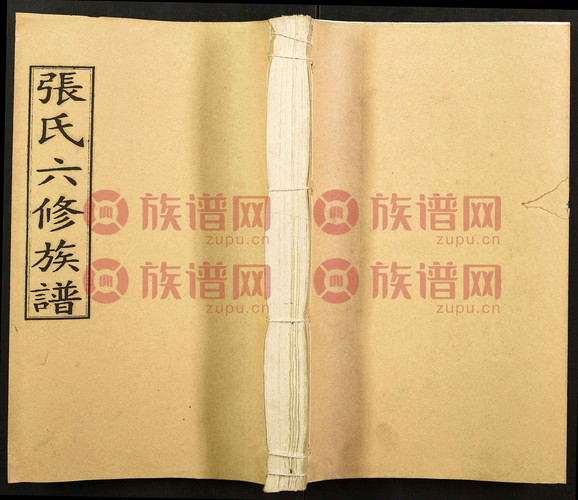 張氏六修族譜
族谱网
zupu.cn
族谱网
zupu.cn
族谱网
zupu.cn
族谱网
zupu.cn